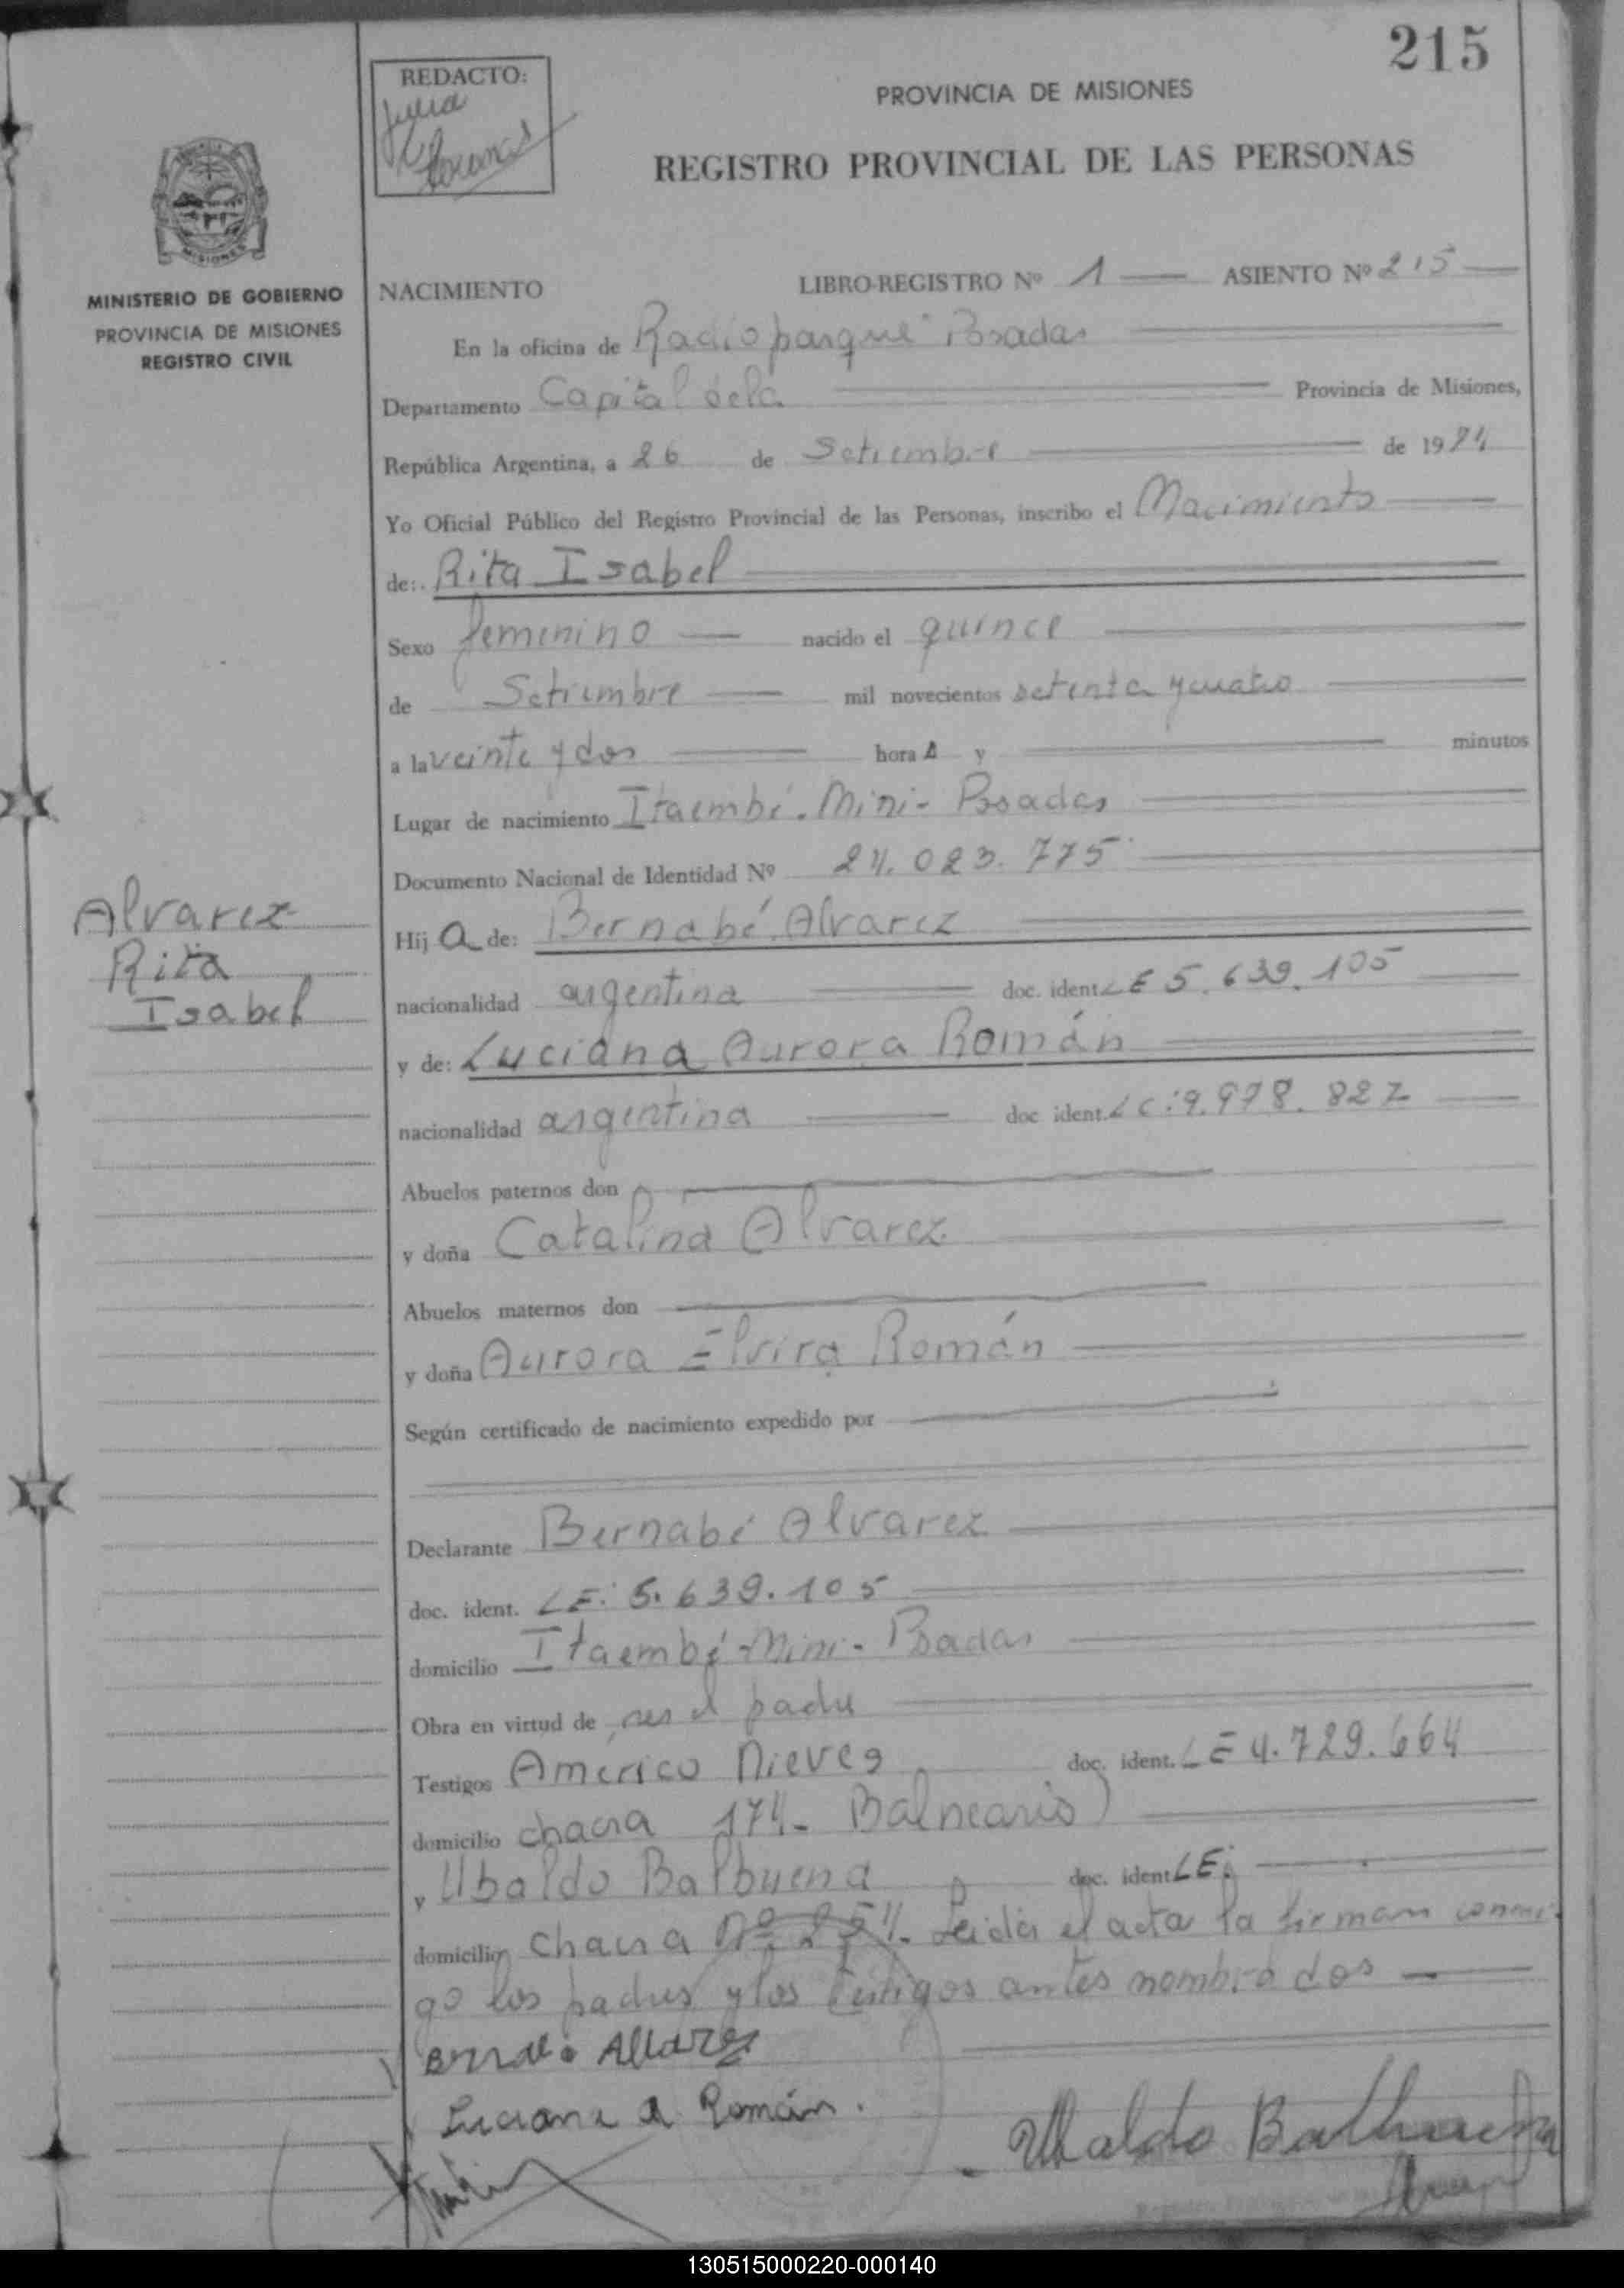 215
REDACTO:
PROVINCIA DE MISIONES
REGISTRO PROVINCIAL DE LAS PERSONAS
MISIONES
MINISTERIO DE GOBIERNO
PROVINCIA DE MISIONES
REGISTRO CIVIL
NACIMIENTO LIBRO-REGISTRO Nº 1 ASIENTO Nº 215
En la oficina de Radioparque Posadas
Departamento Capital dela Provincia de Misiones,
República Argentina, a 26 de Setiembre de 1974
Yo Oficial Público del Registro Provincial de las Personas, inscribo el Nacimiento
de: Rita Isabel
Sexo femenino nacido el quince
de Setiembre mil novecientos setenta y cuatro
a la veinte y dos hora s y minutos
Lugar de nacimiento Itaembé. Mini- Posadas
Documento Nacional de Identidad Nº 24.023.775
Alvarez
Rita
Isabel
Hij a de: Bernabé Alvarez
nacionalidad argentina doc. ident. LE 5.639.105
y de: Luciana Aurora Román
nacionalidad argentina doc ident. LC:9.978.827
Abuelos paternos don
y doña Catalina Alvarez
Abuelos maternos don
y doña Aurora Elvira Román
Según certificado de nacimiento expedido por
Declarante Bernabé Alvarez
doc. ident. LE: 5.639.105
domicilio Itaembé-Mini- Posadas
Obra en virtud de ser el padre
Testigos Americo Nieves doc. ident. LE 4.729.664
domicilio chacra 174- Balneario
y Ubaldo Balbuena doc. ident LE:
domicilio Chacra Nº 254. Leída el acta la firman conmi-
go los padres y los testigos antes nombrados
Luciana A Román.
Ubaldo Balbuena
130515000220-000140